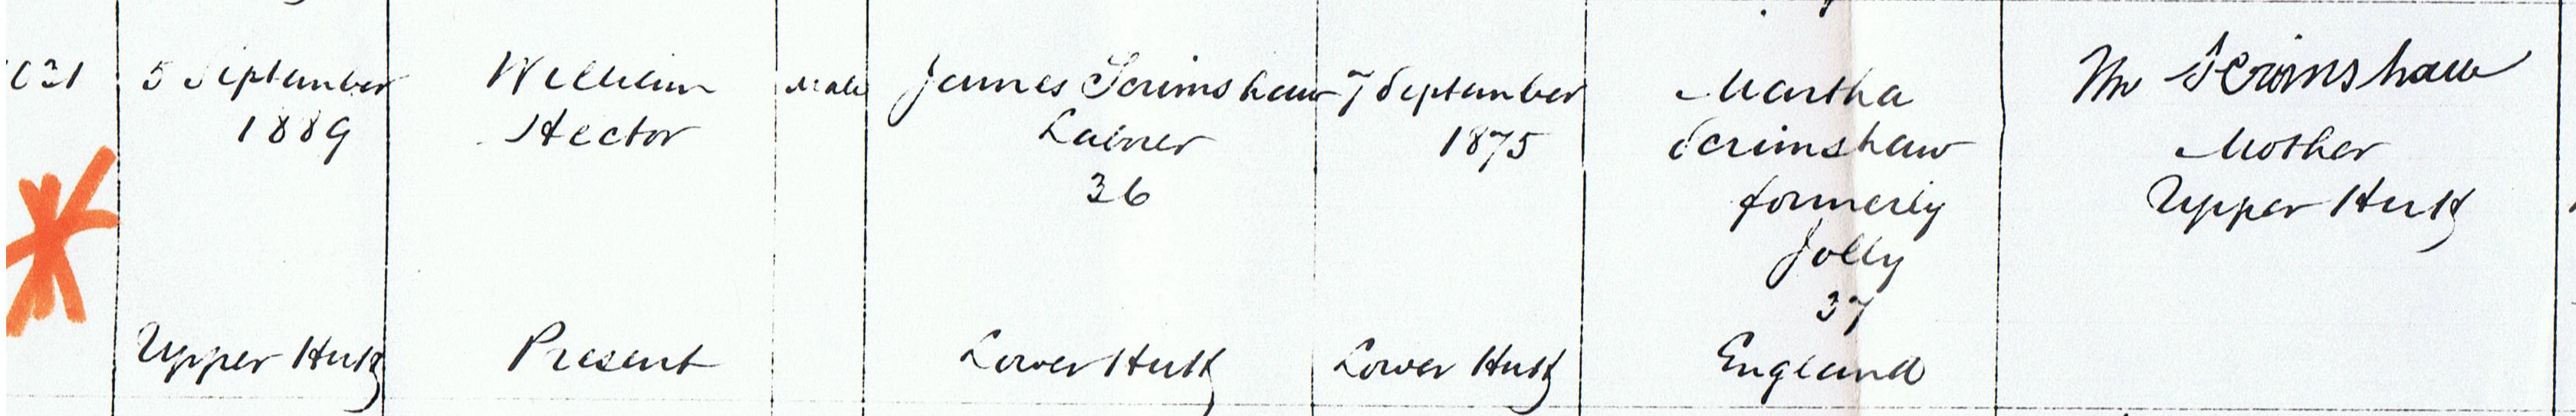 031
5 September
1889
Upper Hutt
William
Hector
Present
Male
James Scrimshaw
Labrer
36
Lower Hutt
7 September
1875
Lower Hutt
Martha
Scrimshaw
formerly
Jolly
37
England
M Scrimshaw
Mother
Upper Hutt